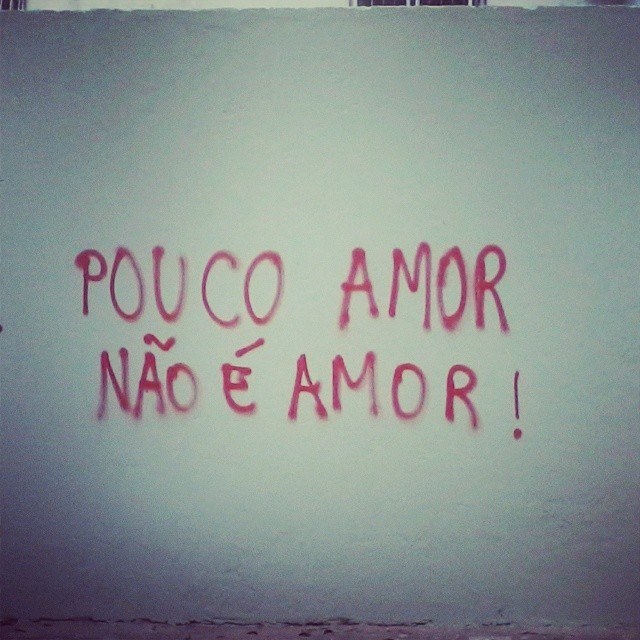 POUCO AMOR
NÃO É AMOR!